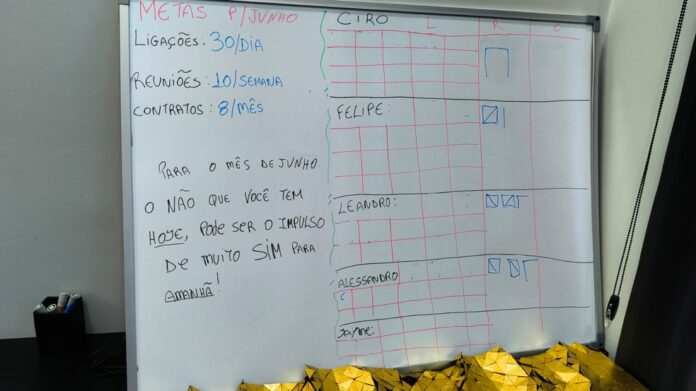 METAS P/JUNHO
LIGAÇÕES: 30/DIA
REUNIÕES: 10/SEMANA
CONTRATOS: 8/MÊS
PARA O MÊS DE JUNHO
O NÃO QUE VOCÊ TEM
HOJE, PODE SER O IMPULSO
DE MUITO SIM PARA
AMANHÃ!
CIRO L R C
FELIPE:
LEANDRO:
ALESSANDRO
Jayme: